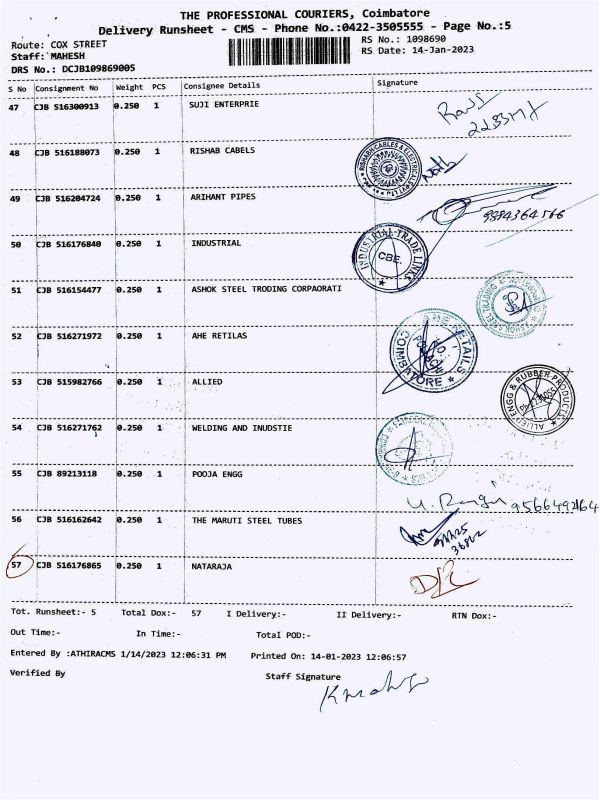 THE PROFESSIONAL COURIERS, Coimbatore
Delivery Runsheet - CMS - Phone No.:0422-3505555 - Page No.:5
Route: COX STREET RS No.: 1098690
Staff: MAHESH RS Date: 14-Jan-2023
DRS No.: DCJB109869005
S No Consignment No Weight PCS Consignee Details Signature
47 CJB 516300913 0.250 1 SUJI ENTERPRIE
48 CJB 516188073 0.250 1 RISHAB CABELS
RISHABH CABLES & ELECTRICALS
49 CJB 516204724 0.250 1 ARIHANT PIPES
9884364566
50 CJB 516176840 0.250 1 INDUSTRIAL
INDUSTRIAL TRADE LINKS
CBE.
51 CJB 516154477 0.250 1 ASHOK STEEL TRODING CORPAORATI
ASHOK STEEL TRADING CORPORATION
52 CJB 516271972 0.250 1 AHE RETILAS
COIMBATORE
53 CJB 515982766 0.250 1 ALLIED
ALLIED ENGG & RUBBER PRODUCTS
54 CJB 516271762 0.250 1 WELDING AND INUDSTIE
55 CJB 89213118 0.250 1 POOJA ENGG
56 CJB 516162642 0.250 1 THE MARUTI STEEL TUBES
57 CJB 516176865 0.250 1 NATARAJA
Tot. Runsheet:- 5 Total Dox:- 57 I Delivery:- II Delivery:- RTN Dox:-
Out Time:- In Time:- Total POD:-
Entered By :ATHIRACMS 1/14/2023 12:06:31 PM Printed On: 14-01-2023 12:06:57
Verified By Staff Signature